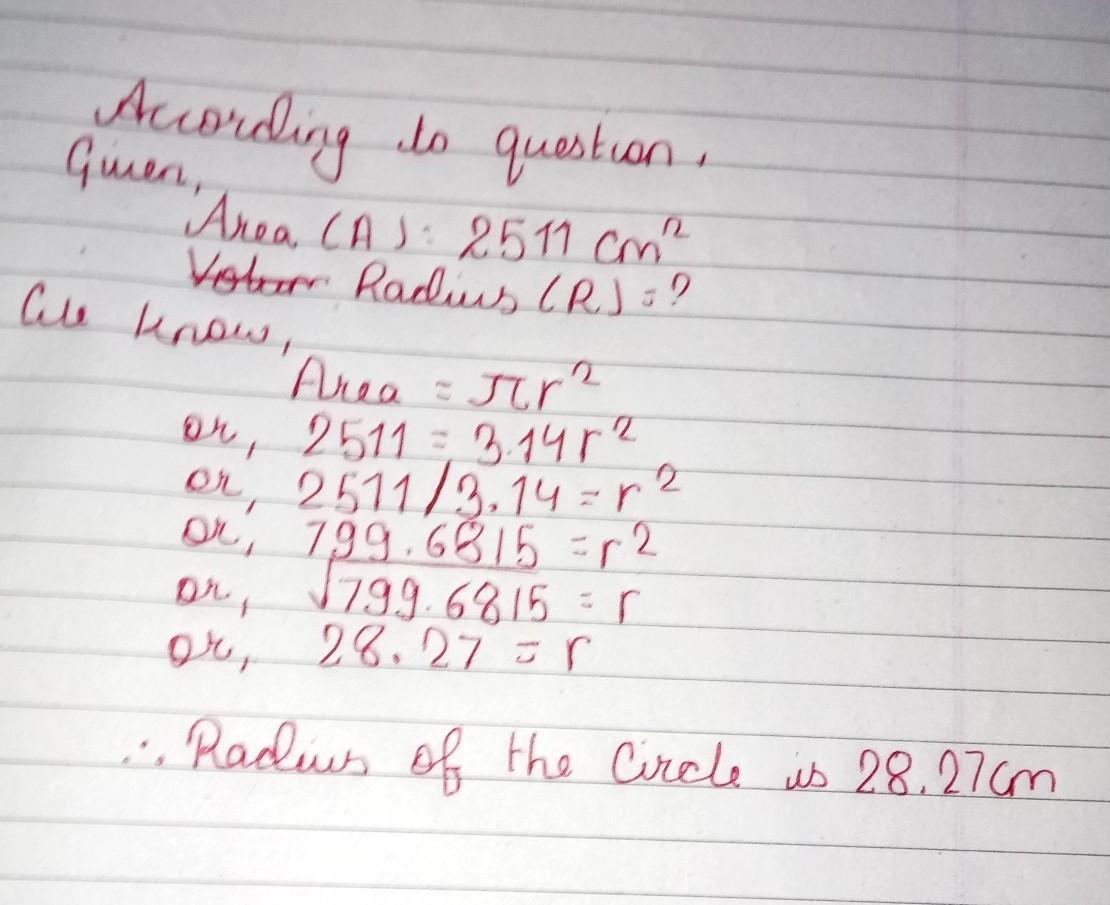 According to question,
Given,
Area (A): 2511 cm²
Radius (R) = ?
We know,
Area = πr²
or, 2511 = 3.14r²
or, 2511/3.14 = r²
or, 799.6815 = r²
or, √799.6815 = r
or, 28.27 = r
∴ Radius of the Circle is 28.27cm